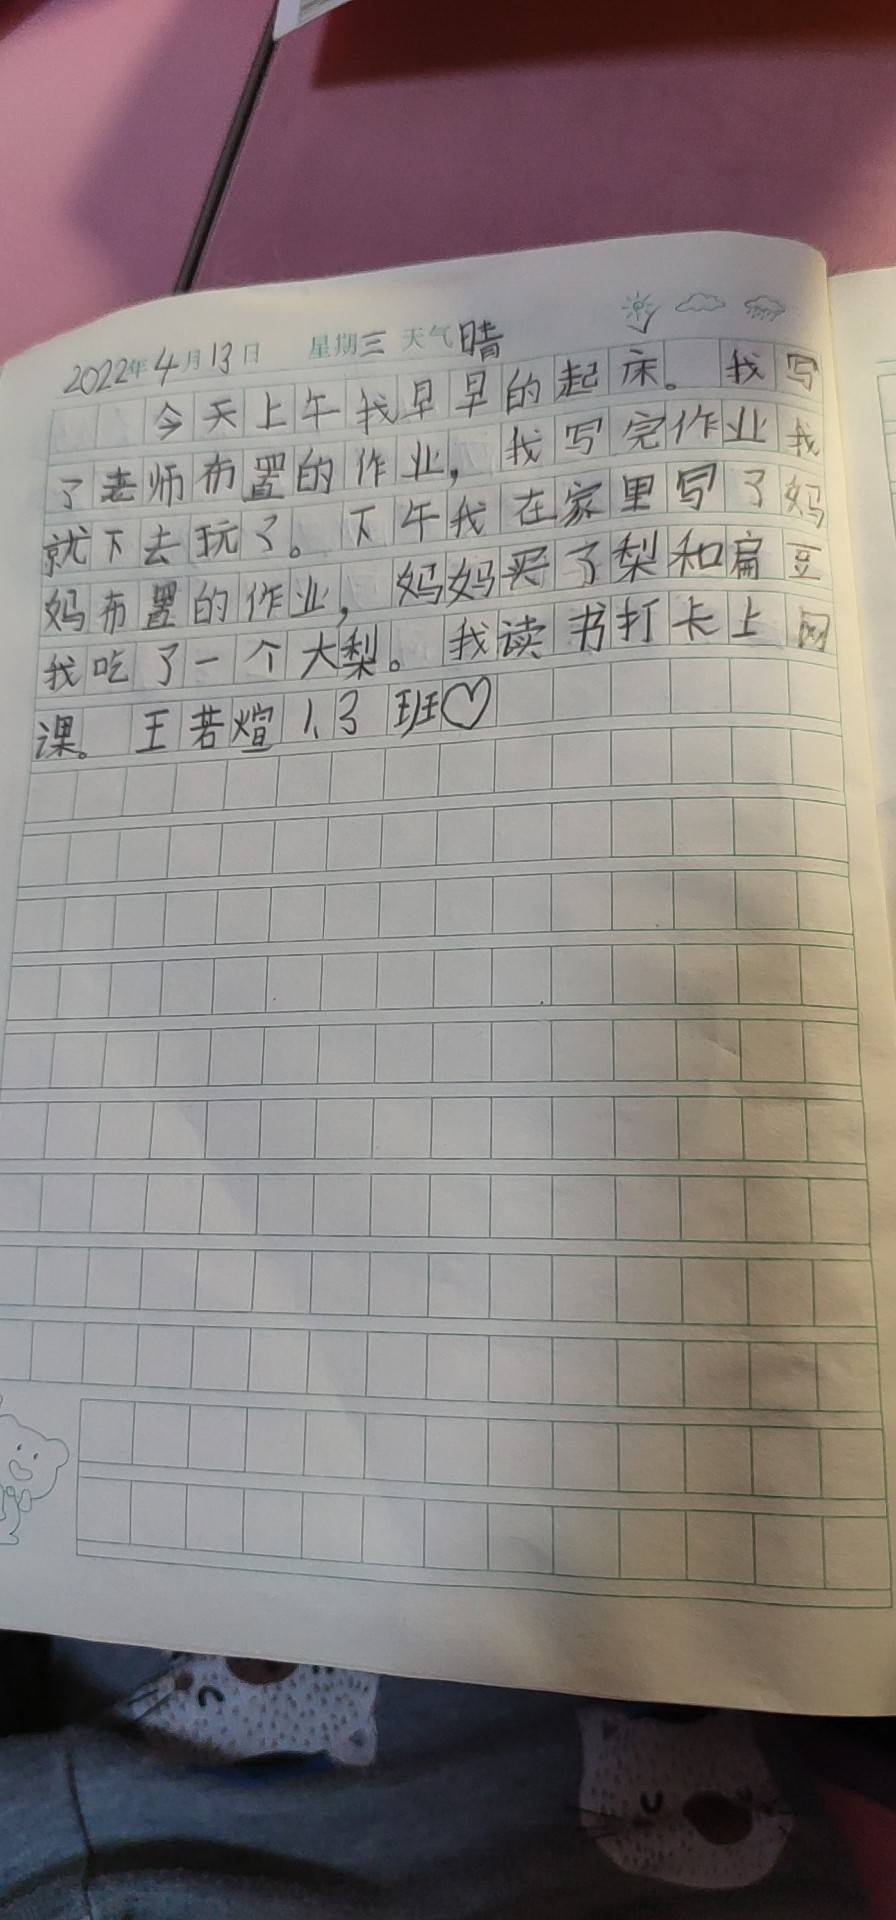 2022年4月13日 星期三 天气晴
今天上午我早早的起床。我写
了老师布置的作业，我写完作业我
就下去玩了。下午我在家里写了妈
妈布置的作业，妈妈买了梨和扁豆
我吃了一个大梨。我读书打卡上网
课。王若煊1、3班♡